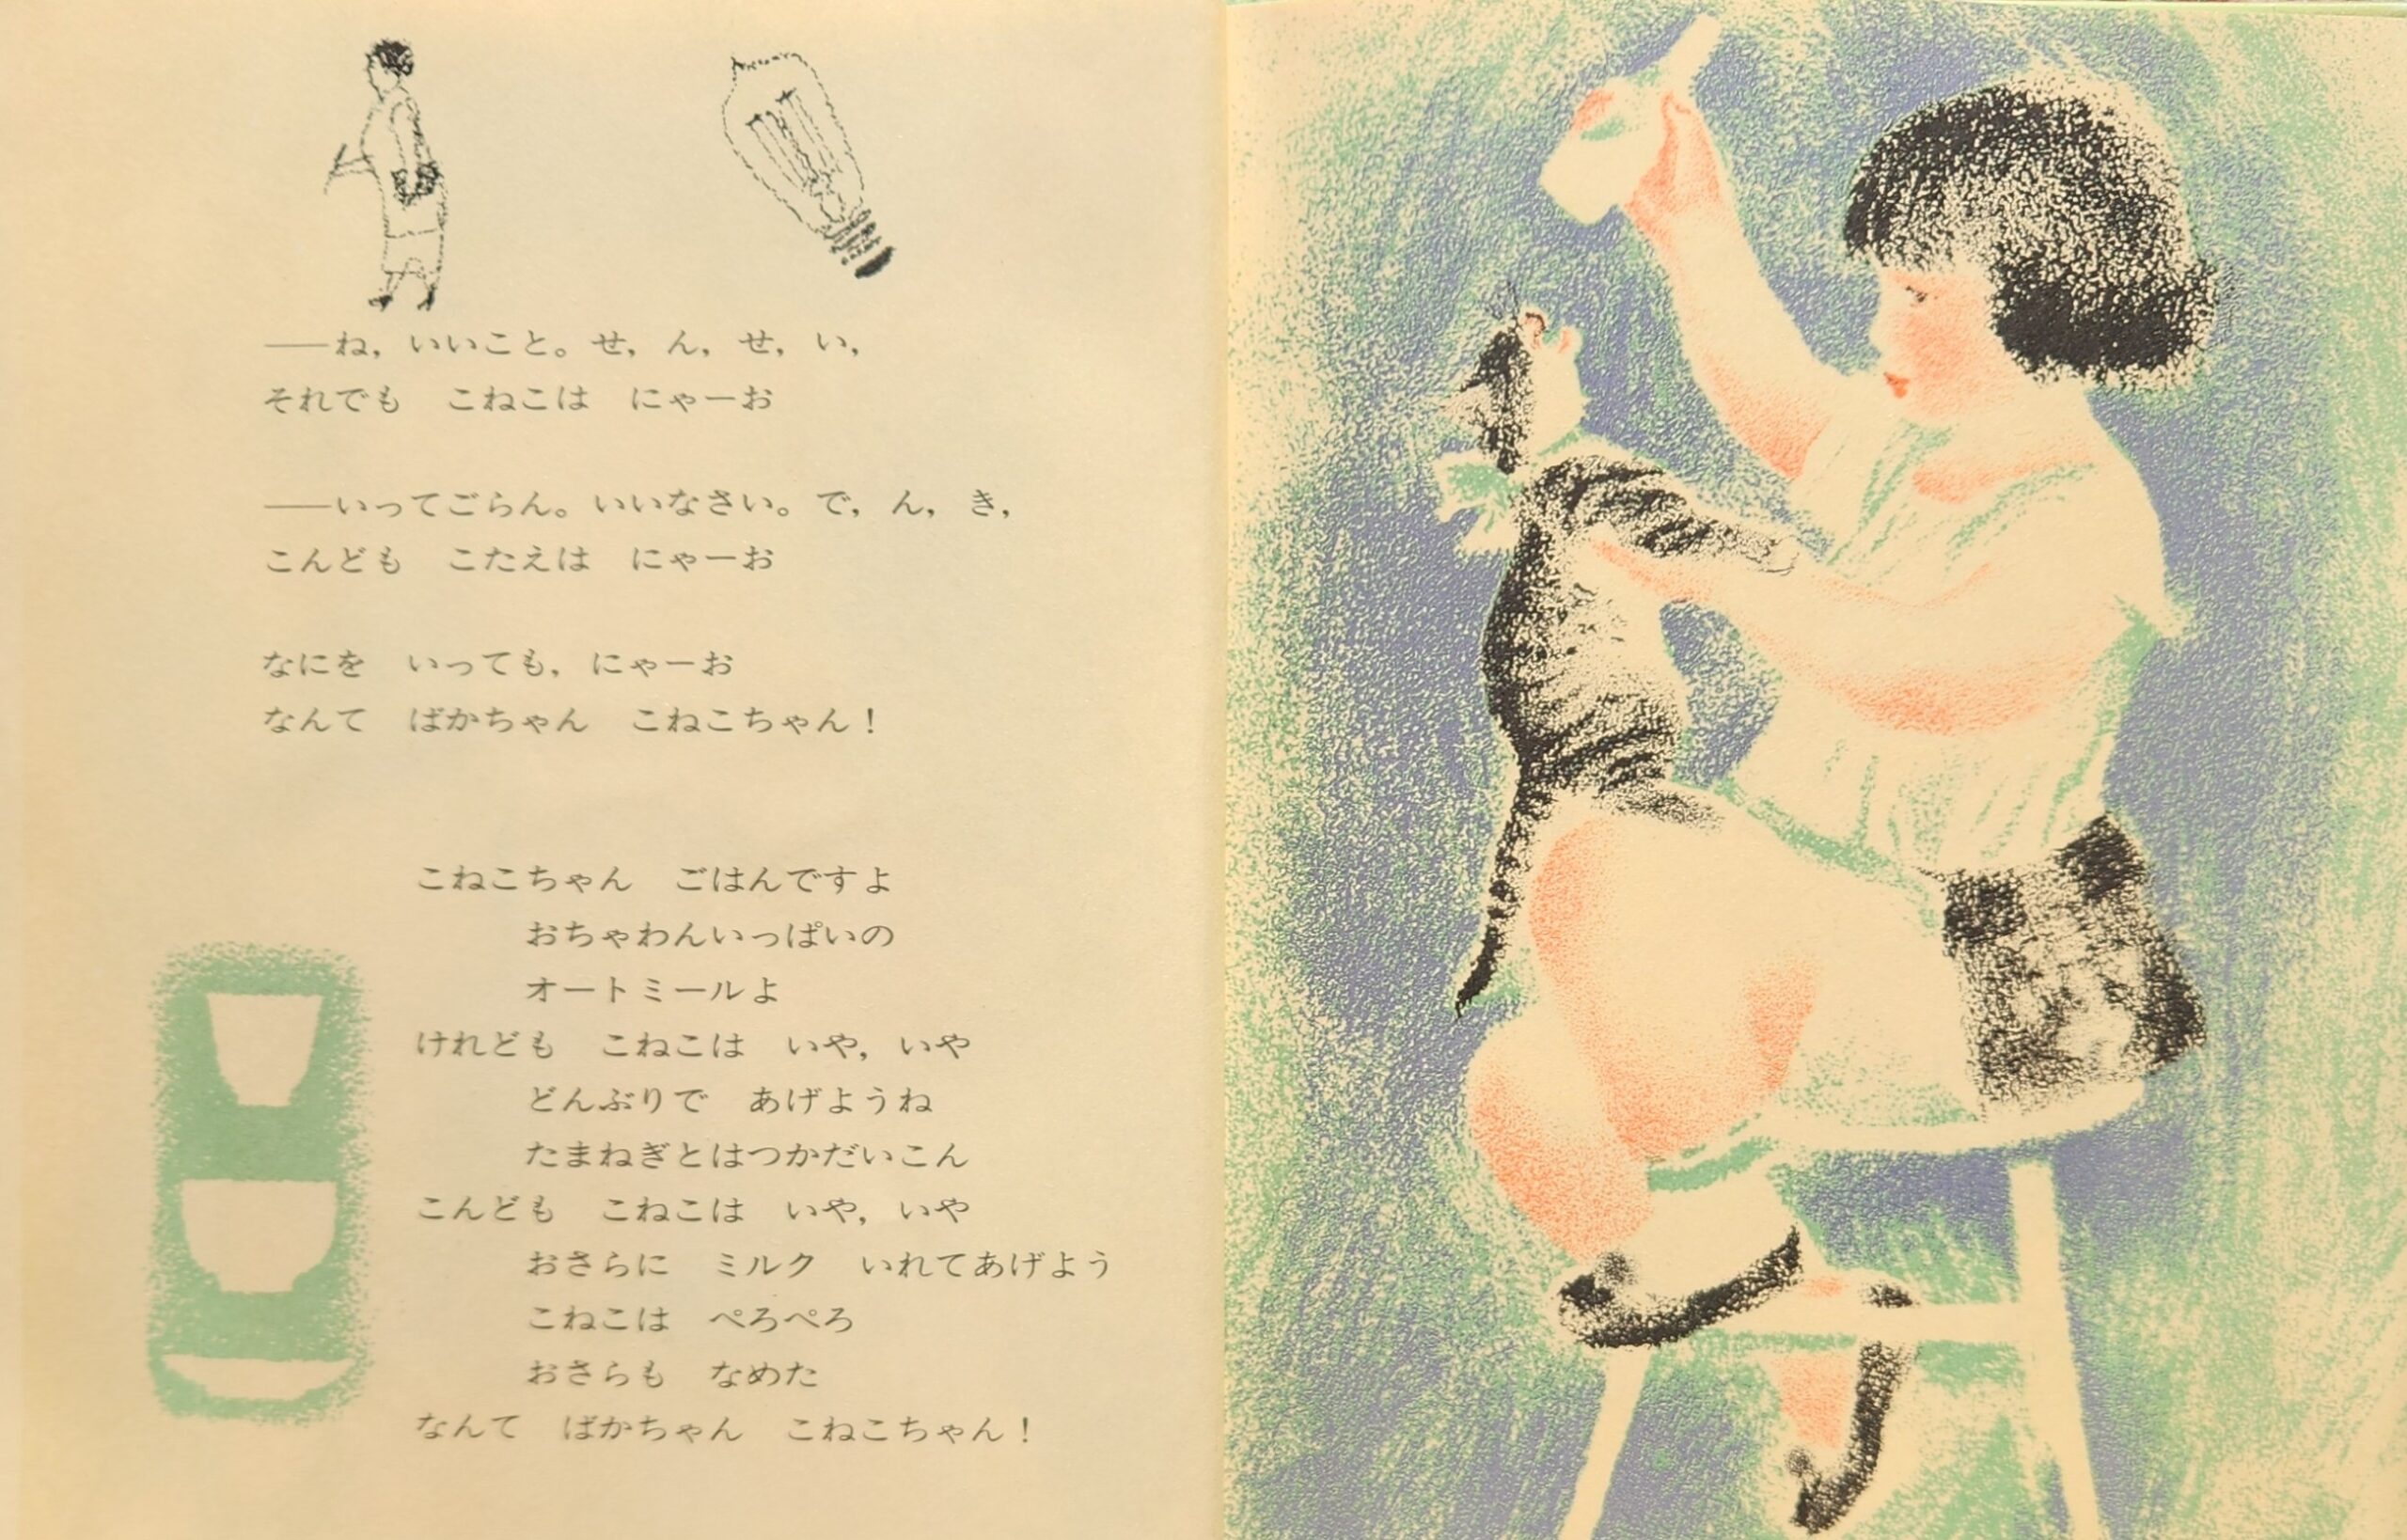 ――ね，いいこと。せ，ん，せ，い，
それでも　こねこは　にゃーお
――いってごらん。いいなさい。で，ん，き，
こんども　こたえは　にゃーお
なにを　いっても，にゃーお
なんて　ばかちゃん　こねこちゃん！
こねこちゃん　ごはんですよ
おちゃわんいっぱいの
オートミールよ
けれども　こねこは　いや，いや
どんぶりで　あげようね
たまねぎとはつかだいこん
こんども　こねこは　いや，いや
おさらに　ミルク　いれてあげよう
こねこは　ぺろぺろ
おさらも　なめた
なんて　ばかちゃん　こねこちゃん！